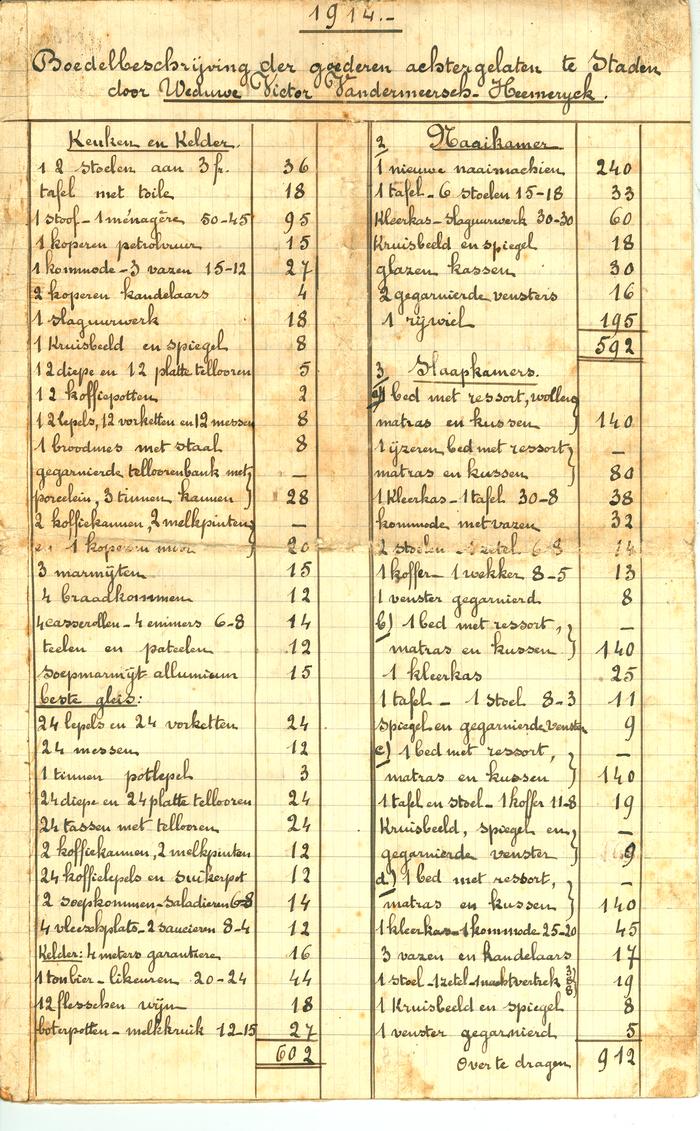 1914.-
Boedelbeschrijving der goederen achtergelaten te Staden
door Weduwe Victor Vandermeersch-Heemeryck.
Keuken en Kelder.
12 stoelen aan 3 fr. 36
tafel met toile 18
1 stoof-1 ménagère 50-45 95
1 koperen petrolvuur 15
1 kommode-3 vazen 15-12 27
2 koperen kandelaars 4
1 slaguurwerk 18
1 Kruisbeeld en spiegel 8
12 diepe en 12 platte tellooren 5
12 koffiepotten 2
12 lepels, 12 vorketten en 12 messen 8
1 broodmes met staal 8
gegarnierde telloorenbank met —
porcelein, 3 tinnen kannen } 28
2 koffiekannen, 2 melkpinten —
en 1 koperen moor } 20
3 marmijten 15
4 braadkommen 12
4 casserollen-4 emmers 6-8 14
teelen en pateelen 12
soepmarmijt allumieum 15
beste gleis:
24 lepels en 24 vorketten 24
24 messen 12
1 tinnen potlepel 3
24 diepe en 24 platte tellooren 24
24 tassen met tellooren 24
2 koffiekannen, 2 melkpinten 12
24 koffielepels en suikerpot 12
2 soepkommen-saladieren 6-8 14
4 vleeschplats-2 saucieren 8-4 12
Kelder: 4 meters garantiere 16
1 ton bier-likeuren 20-24 44
12 flesschen wijn 18
boterpotten-melkkruik 12-15 27
602
2/ Naaikamer
1 nieuwe naaimachien 240
1 tafel-6 stoelen 15-18 33
Kleerkas-slaguurwerk 30-30 60
Kruisbeeld en spiegel 18
glazen kassen 30
2 gegarnierde vensters 16
1 rijwiel 195
592
3/ Slaapkamers.
a) 1 bed met ressort, wollen
matras en kussen } 140
1 ijzeren bed met ressort —
matras en kussen } 80
1 Kleerkas-1 tafel 30-8 38
kommode met vazen 32
2 stoelen-1 zetel 6-8 14
1 koffer-1 wekker 8-5 13
1 venster gegarnierd 8
b) 1 bed met ressort, —
matras en kussen } 140
1 kleerkas 25
1 tafel-1 stoel 8-3 11
spiegel en gegarnierde venster 9
c) 1 bed met ressort, —
matras en kussen } 140
1 tafel en stoel-1 koffer 11-8 19
Kruisbeeld, spiegel en —
gegarnierde venster } 9
d) 1 bed met ressort, —
matras en kussen } 140
1 kleerkas-1 kommode 25-20 45
3 vazen en kandelaars 17
1 stoel-1 zetel-1 nachtvertrek 3 8 8 } 19
1 Kruisbeeld en spiegel 8
1 venster gegarnierd 5
Over te dragen 912